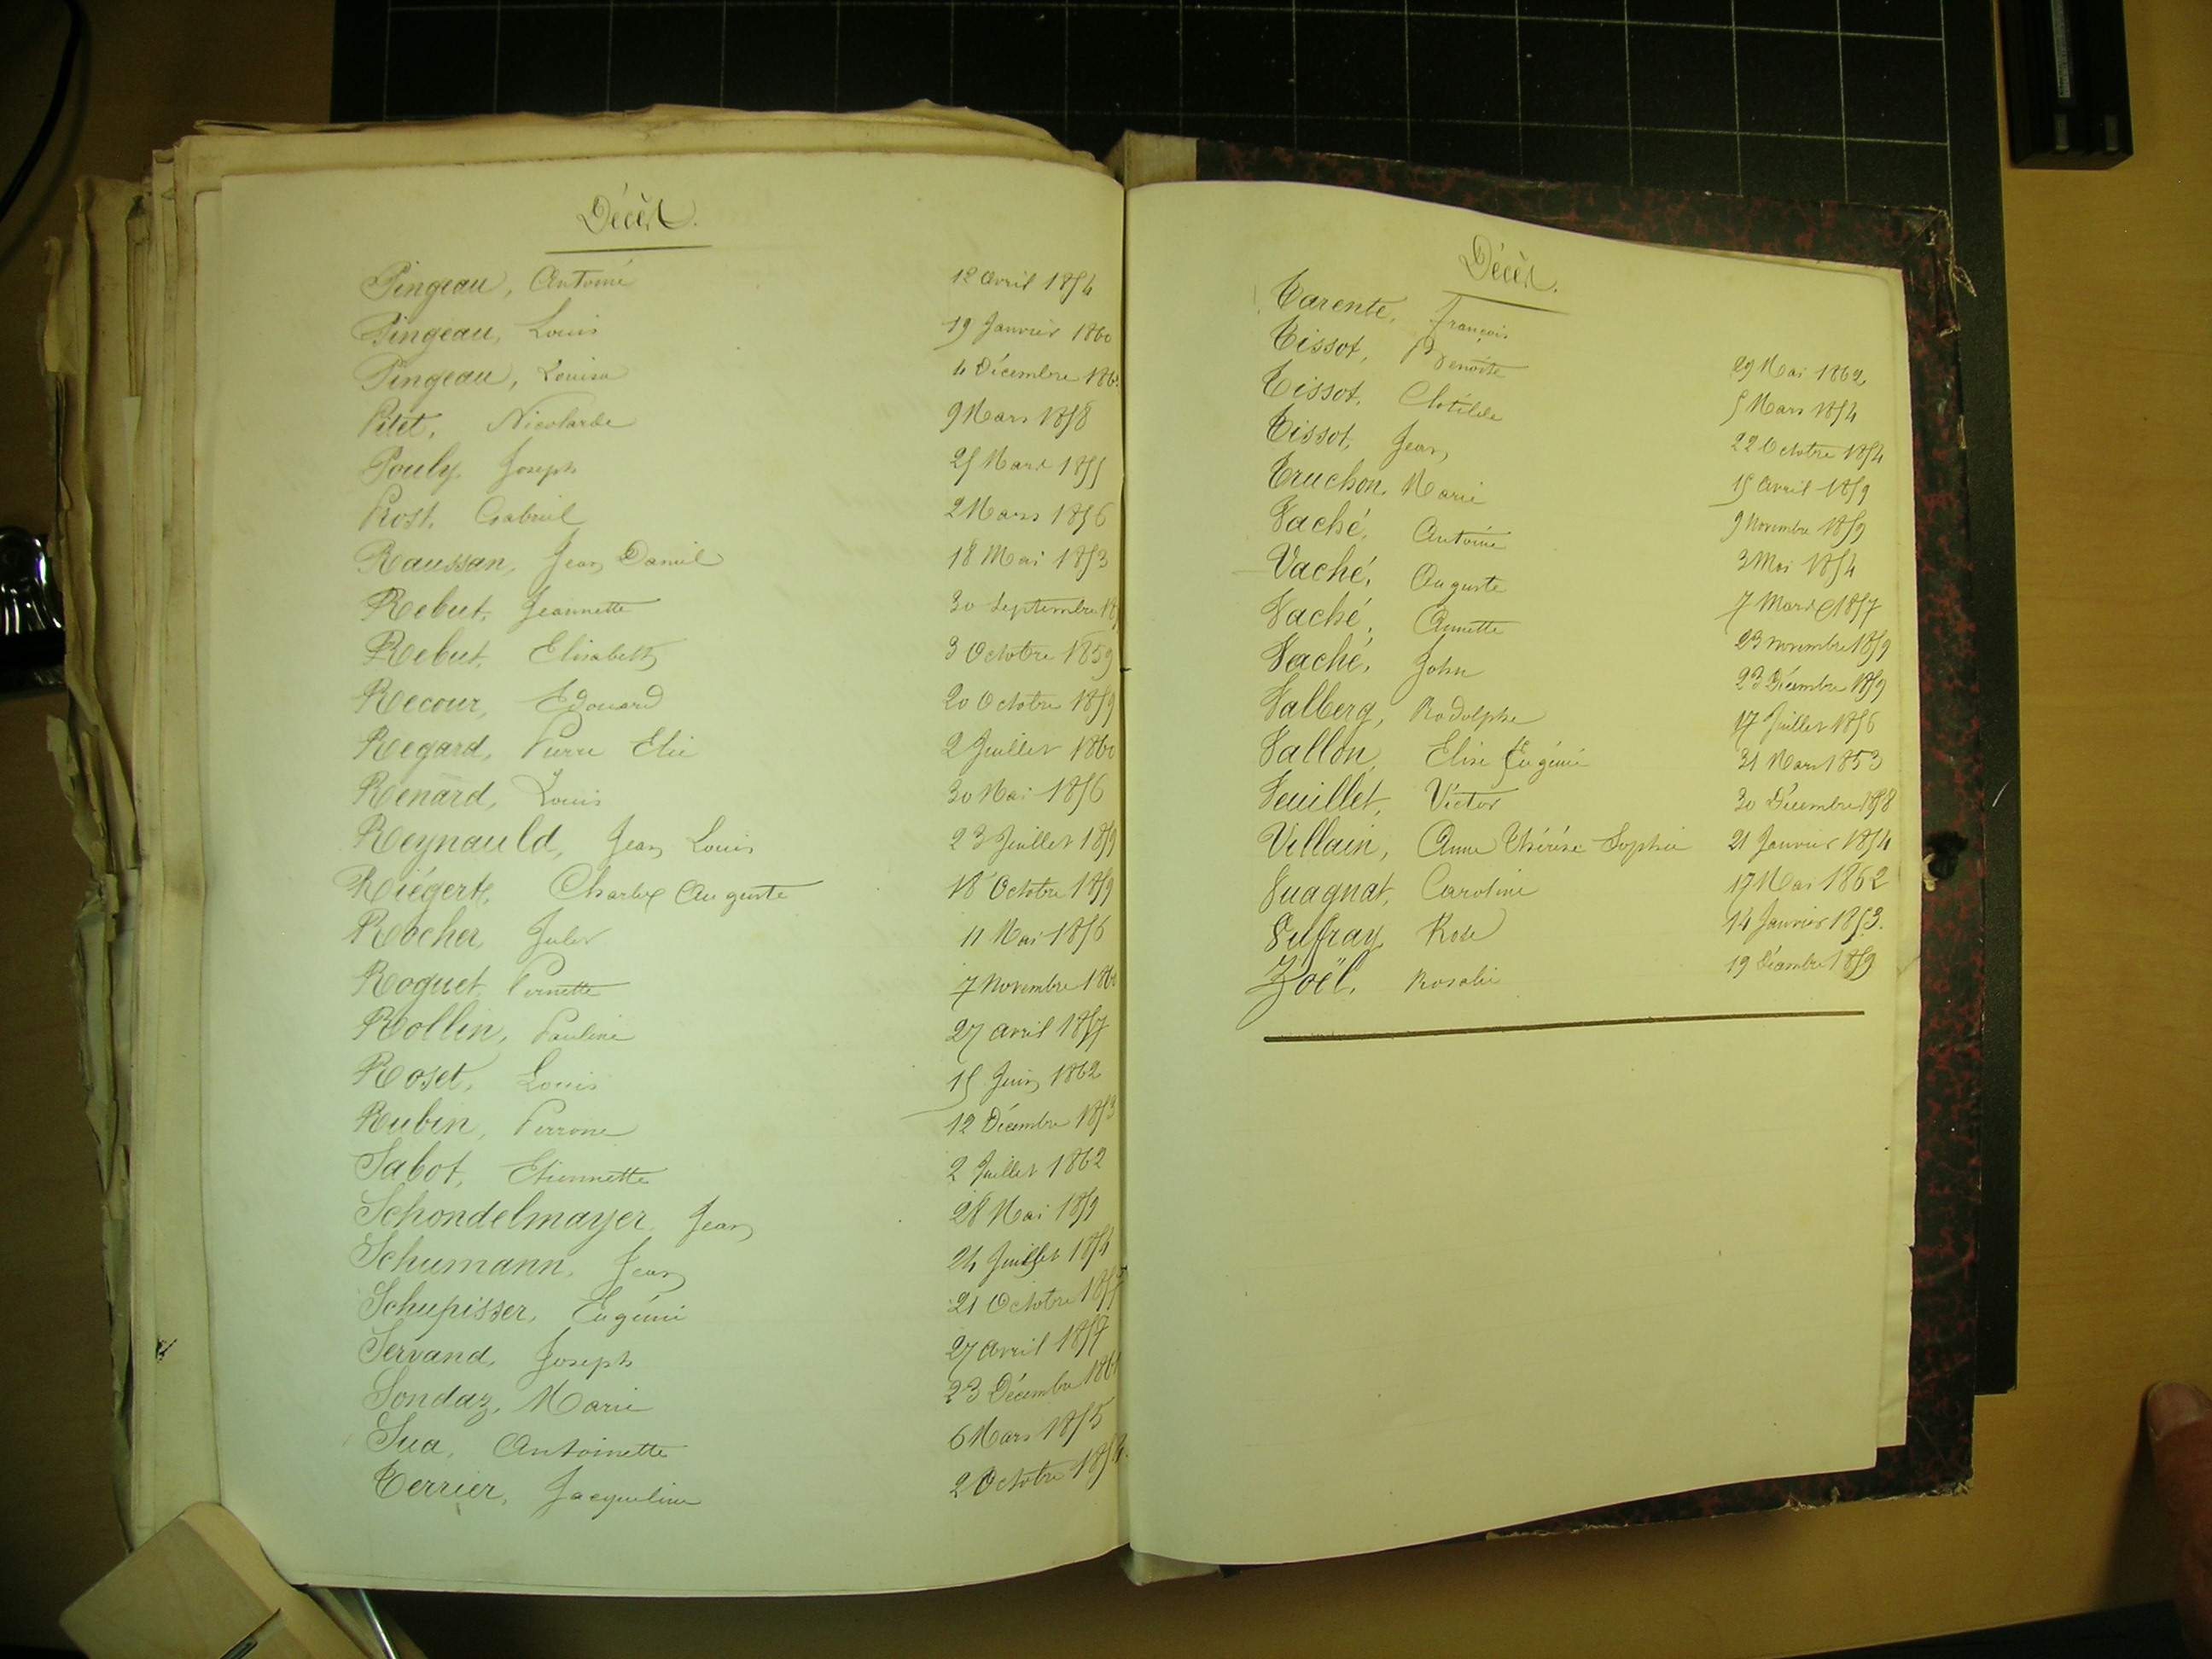 Décès.
Pingeau, Antoine 12 avril 1854
Pingeau, Louis 19 Janvier 1860
Pingeau, Louisa 4 Décembre
Pitet, Nicolarde 9 Mars 1858
Pouly, Joseph 25 Mars 1855
Rost, Gabriel 2 Mars 1856
Raussan, Jean Daniel 18 Mai 1853
Rebut, Jeannette 30 Septembre
Rebut, Elisabeth 3 Octobre 1859
Recour, Edouard 20 Octobre 1859
Regard, Pierre Elie 2 Juillet 1860
Renard, Louis 30 Mai 1856
Reynauld, Jean Louis 23 Juillet 1859
Riégert, Charles Auguste 18 Octobre 1859
Rocher, Jules 11 Mai 1856
Roguet, Pernette 7 Novembre
Rollin, Pauline 27 avril 1857
Roset, Louis 15 Juin 1862
Rubin, Perrone 12 Décembre 1853
Sabot, Etiennette 2 Juillet 1862
Schondelmayer, Jean 28 Mai 1859
Schumann, Jean 24 Juillet 1854
Schupisser, Eugénie 21 Octobre
Servand, Joseph 27 avril 1857
Sondaz, Marie 23 Décembre 1861
Sua, Antoinette 6 Mars 1855
Terrier, Jacqueline 2 Octobre
Décès.
Tarente, François 29 Mai 1862
Tissot, Benoite 5 Mars 1854
Tissot, Clotilde 22 Octobre 1854
Tissot, Jean 15 avril 1859
Truchon, Marie 9 Novembre 1859
Vaché, Antoine 3 Mai 1854
Vaché, Auguste 7 Mars 1857
Vaché, Annette 23 novembre 1859
Vaché, John 23 Décembre 1859
Valberg, Rodolphe 17 Juillet 1856
Vallon, Elise Eugénie 31 Mars 1853
Veuillet, Victor 30 Décembre 1858
Villain, Anne Thérèse Sophie 21 Janvier 1854
Vuagnat, Caroline 17 Mai 1862
Vulfray, Rose 14 Janvier 1853.
Zoël, Rosalie 19 Décembre 1859